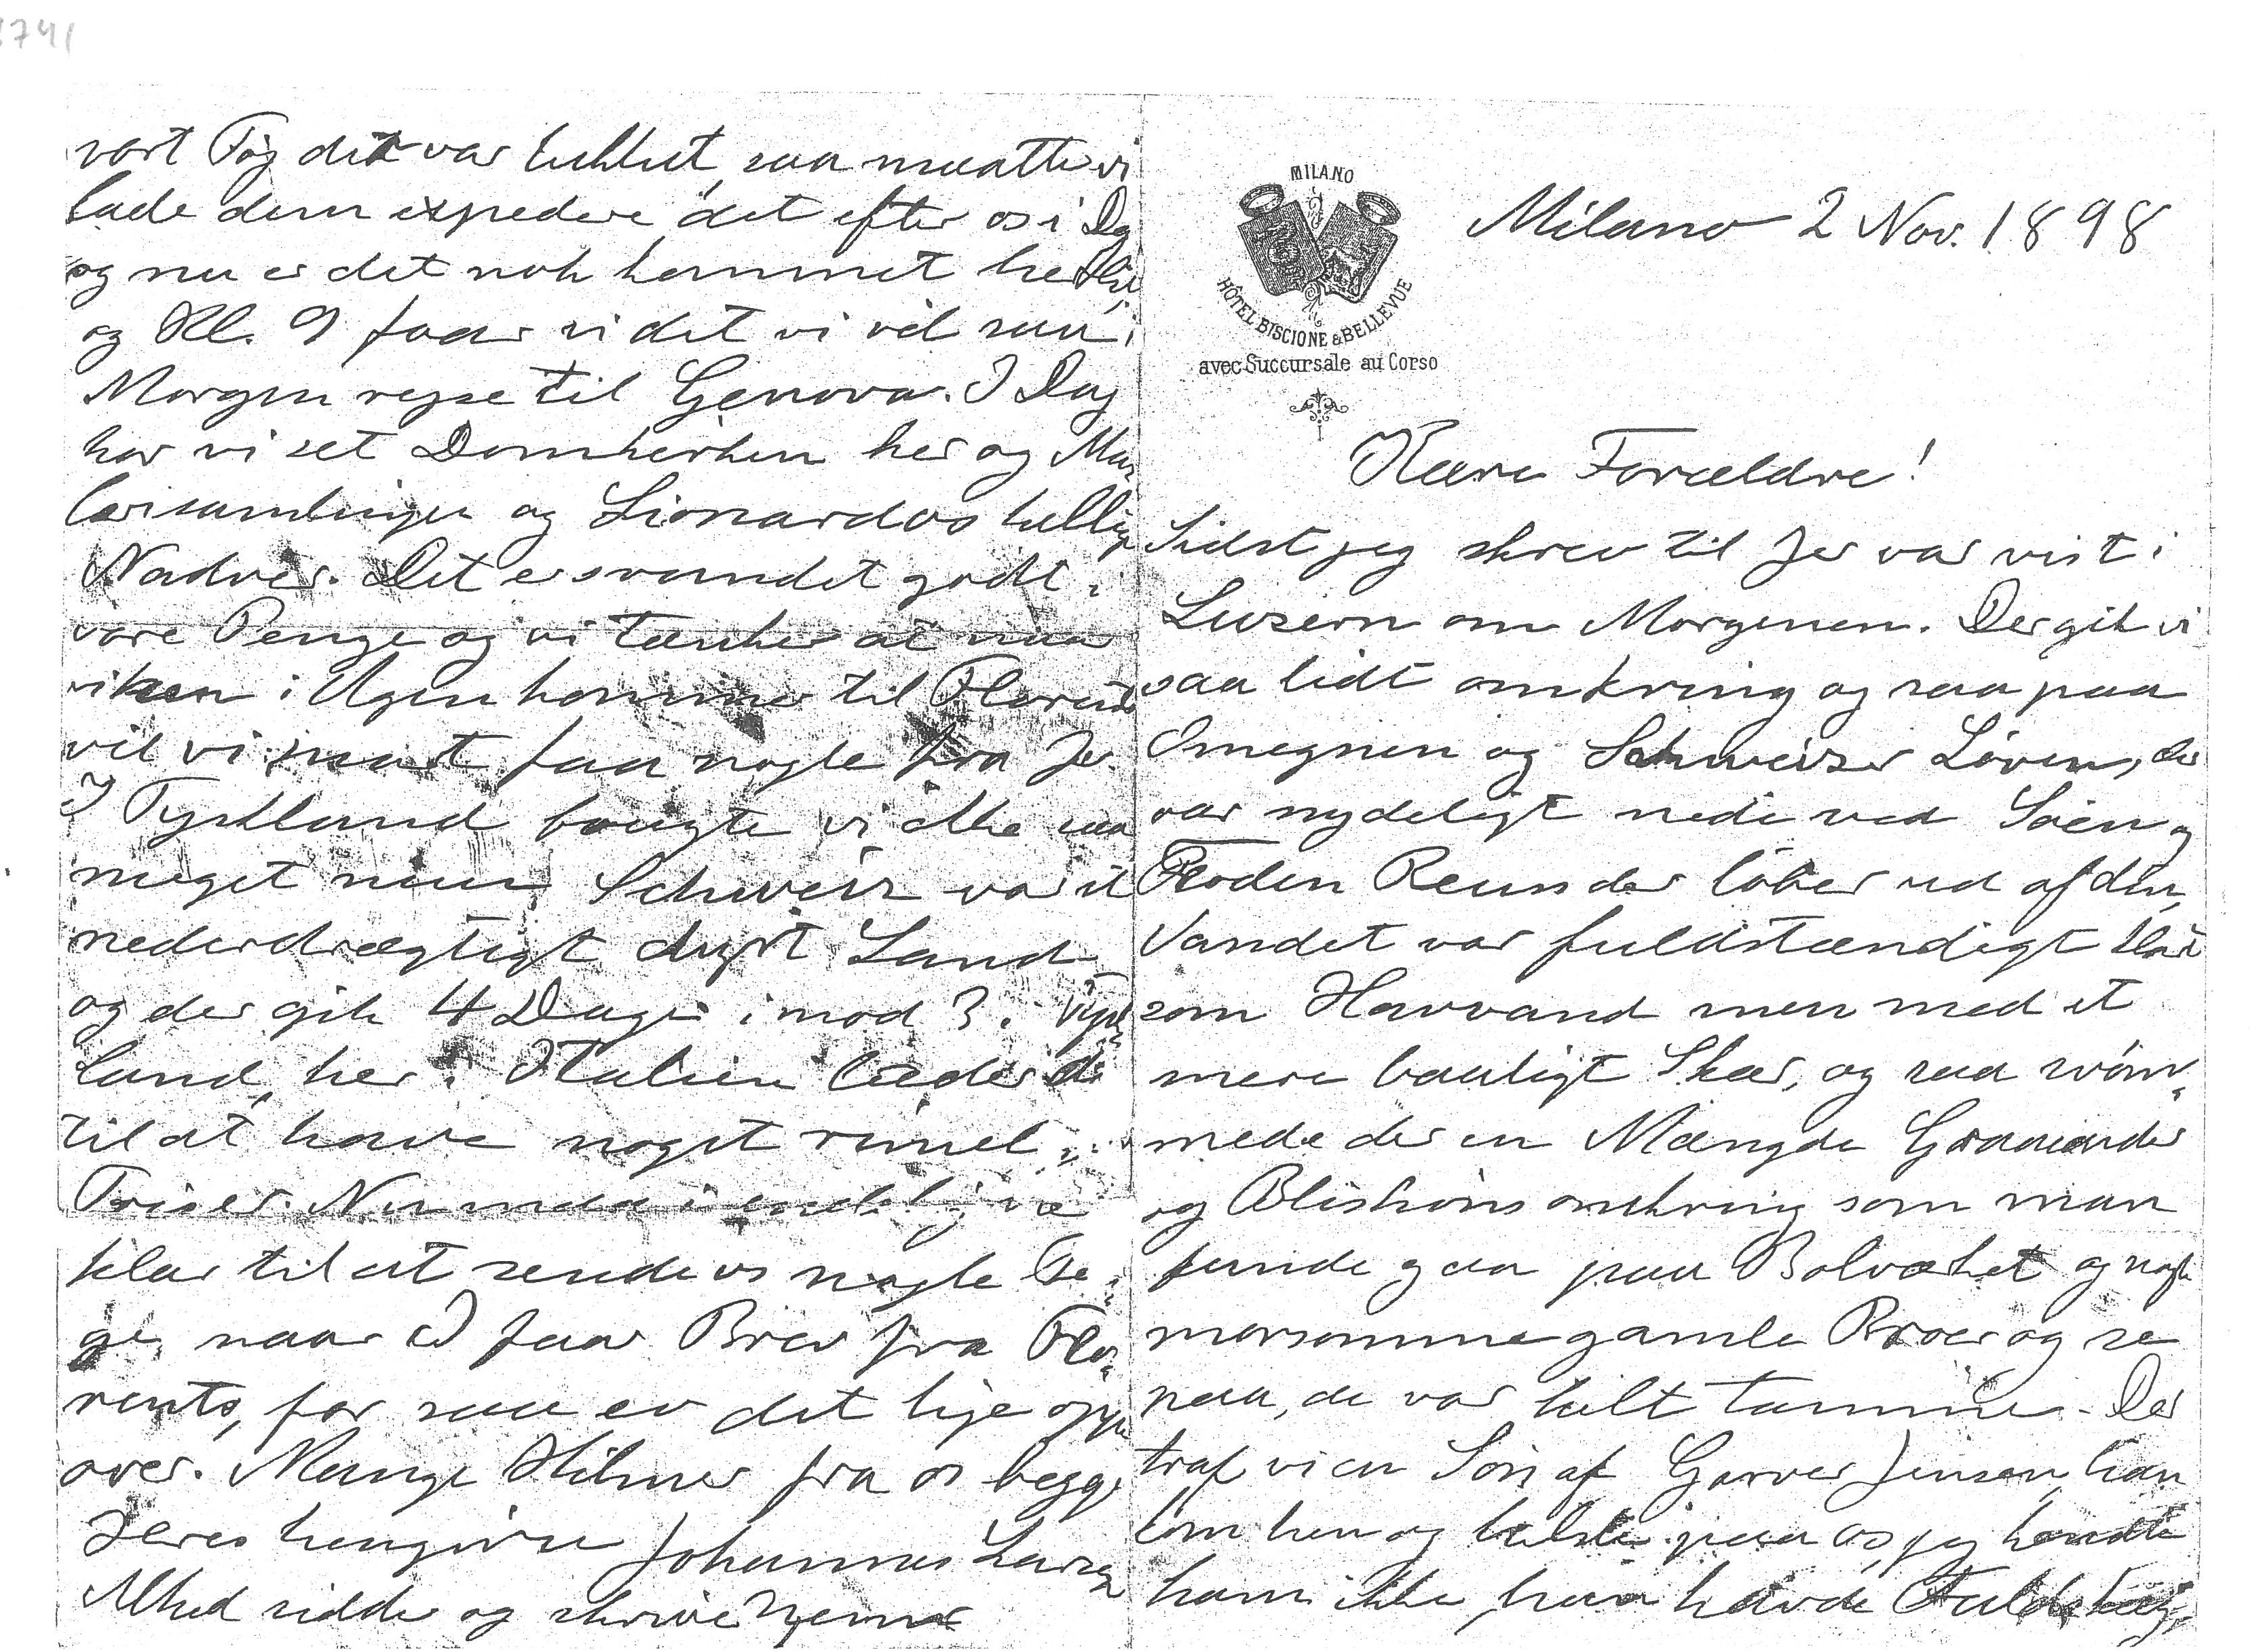 8741
MILANO
HÔTEL BISCIONE & BELLEVUE
avec Succursale au Corso
Milano 2 Nov. 1898
Kære Forældre!
Sidst jeg skrev til Jer var vist i
Luzern om Morgenen. Der gik vi
saa lidt omkring og saa paa
Omegnen og Schweizer Löven, der
var nydeligt nede ved Söen og
Floden Reuss der löber ud af den,
Vandet var fuldstændigt klart
som Havvand men med et
mere blaaligt Skær, og saa svöm-
mede der en Mængde Graaænder
og Blishöns omkring som man
kunde gaa paa Bolværket og nogle
morsomme gamle Broer og se
paa, de var helt tamme. Der
traf vi en Sön af Garver Jensen, han
kom hen og hilste paa os, jeg kendte
ham ikke, han havde Fuldskæg,
vort Töj det var lukket, saa maatte vi
lade dem expedere det efter os i Dag
og nu er det nok kommet her til
og Kl. 9 faar vi det vi vil saa i
Morgen rejse til Genova. I Dag
har vi set Domkirken her og Ma-
lerisamlingen og Lionardos hellige
Nadver. Det er svundet godt i
vore Penge og vi tænker at naar
vi i Ugen kommer til Florents
vil vi faa nogle fra Jer
I Tyskland brugte vi ikke saa
meget men Schweiz var et
nederdrægtigt dyrt Land
og der gik 4 Dage imod 3 i Tysk-
land, her i Italien lader de
til at have noget rimel-
Priser. Nu maa I endelig være
klar til at sende os nogle Pe-
ge, naar I faar Brev fra Flo-
rents, for saa er det lige oppe
over. Mange Hilsner fra os begge
Jeres hengivne Johannes Larsen
Alhed sidder og skriver hjem